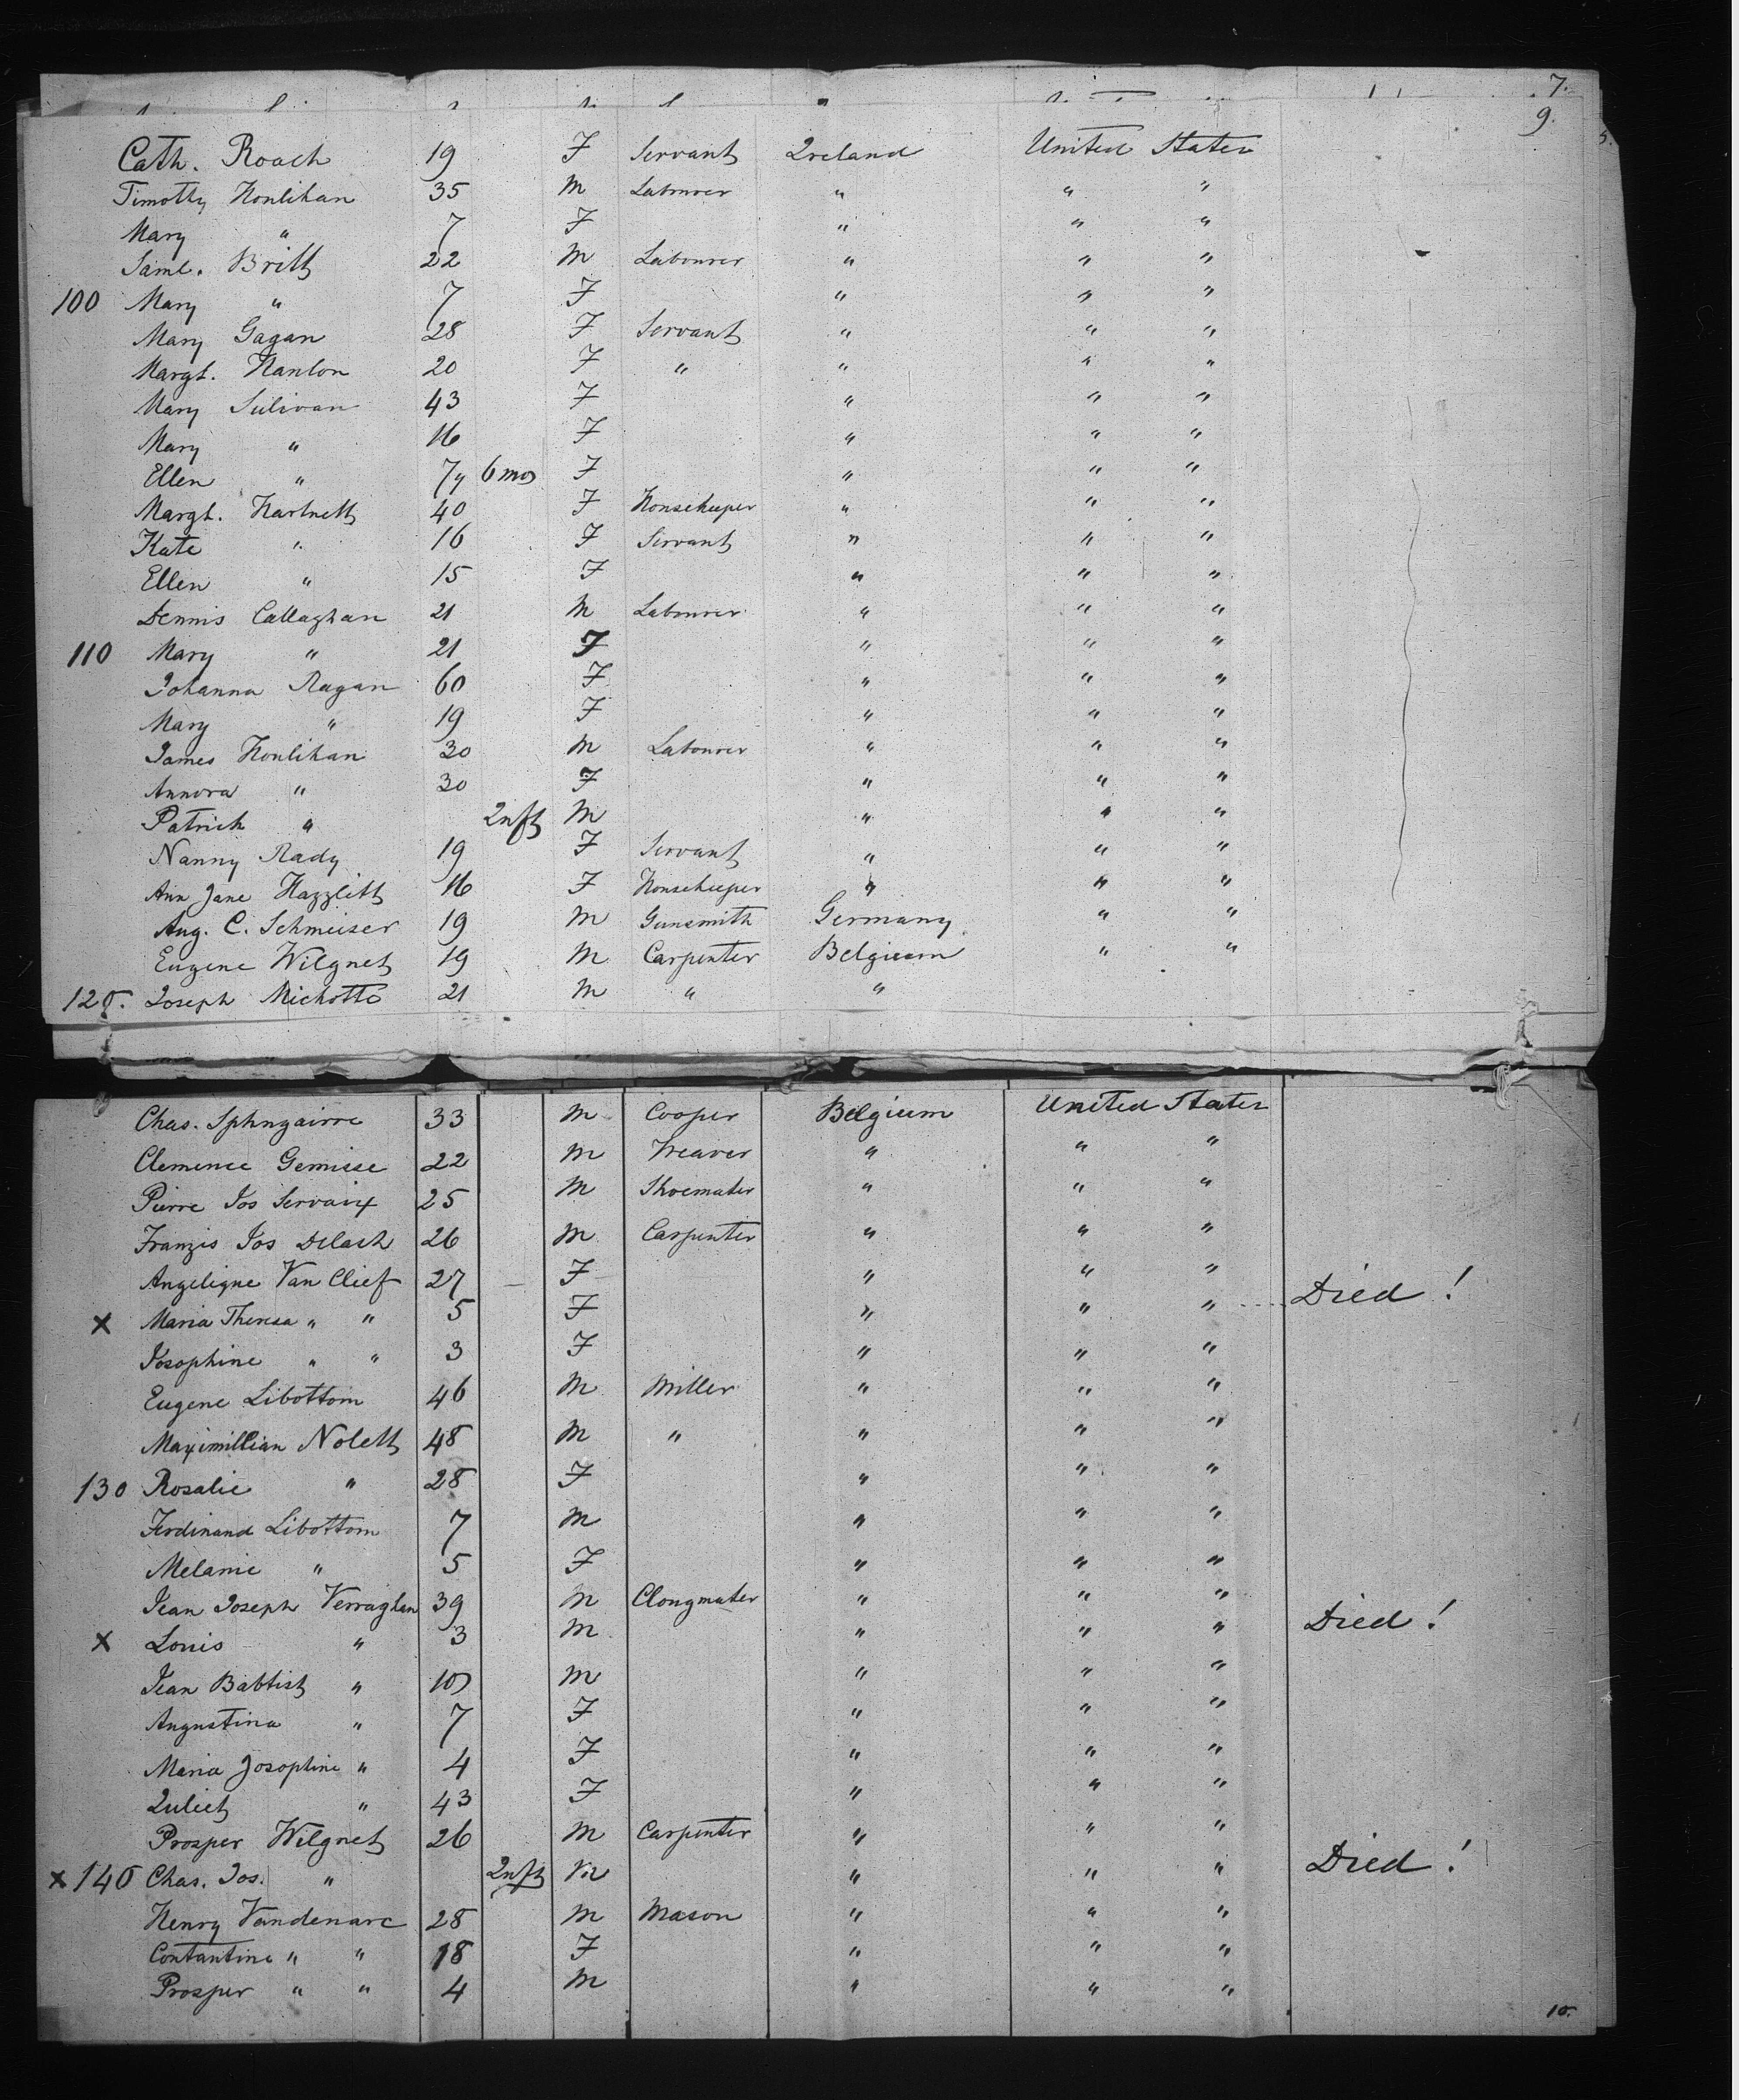 7.
9.
Cath. Roach 19 F Servant Ireland United States
Timothy Honlihan 35 M Labourer " " "
Mary " 7 F " " "
Saml. Britt 22 M Labourer " " "
100 Mary " 7 F " " "
Mary Gagan 28 F Servant " " "
Margt. Hanlon 20 F " " " "
Mary Sulivan 43 F " " "
Mary " 16 F " " "
Ellen " 7y 6 mos F " " "
Margt. Hartnett 40 F Housekeeper " " "
Kate " 16 F Servant " " "
Ellen " 15 F " " "
Dennis Callaghan 21 M Labourer " " "
110 Mary " 21 F " " "
Johanna Ragan 60 F " " "
Mary " 19 F " " "
James Honlihan 30 M Labourer " " "
Annora " 30 F " " "
Patrick " Inft M " " "
Nanny Rady 19 F Servant " " "
Ann Jane Hazzlitt 16 F Housekeeper " " "
Aug. C. Schmeiser 19 M Gunsmith Germany " "
Eugene Wilgnet 19 M Carpenter Belgium " "
120. Joseph Michotte 21 M " "
Chas. Sphngairre 33 M Cooper Belgium United States
Clemence Gemisse 22 M Weaver " " "
Pierre Jos Servaix 25 M Shoemaker " " "
Franzis Jos Delach 26 M Carpenter " " "
Angeligne Van Clief 27 F " " "
X Maria Theresa " " 5 F " " " Died !
Josophine " " 3 F " " "
Eugene Libottom 46 M Miller " " "
Maximillian Nolett 48 M " " " "
130 Rosalie " 28 F " " "
Ferdinand Libottom 7 M " " "
Melanie " 5 F " " "
Jean Joseph Verraghan 39 M Clongmaker " " "
X Louis " 3 M " " " Died !
Jean Babtist " 10 M " " "
Augustina " 7 F " " "
Maria Josophine " 4 F " " "
Juliet " 43 F " " "
Prosper Wilgnet 26 M Carpenter " " "
X 140 Chas. Jos. " Inft M " " " Died !
Henry Vandenare 28 M Mason " " "
Contantine " " 18 F " " "
Prosper " " 4 M " " "
10.